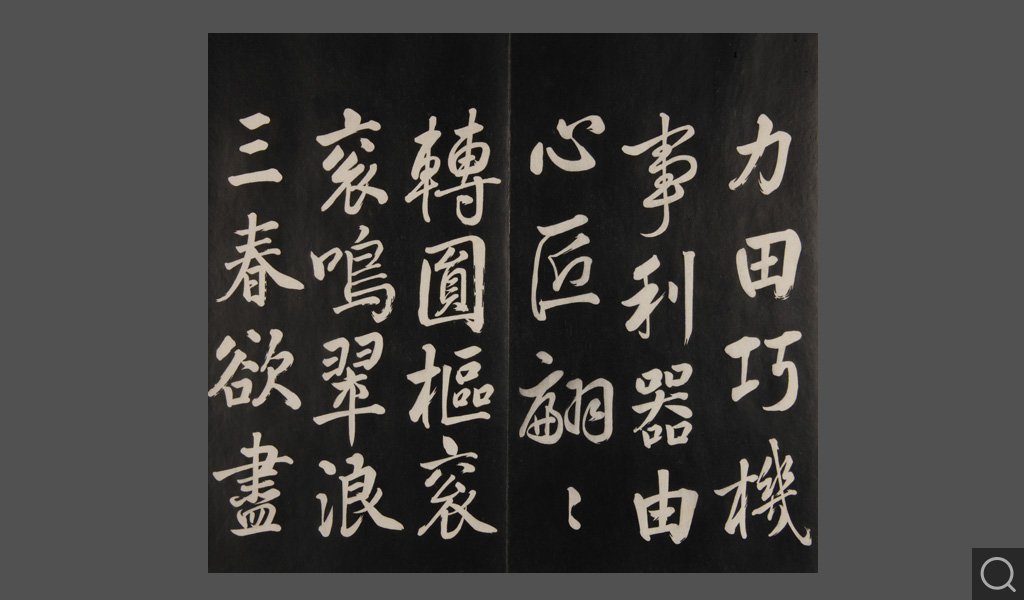 力田巧機
事利器由
心匠翩〻
轉圓樞衮
衮鳴翠浪
三春欲盡